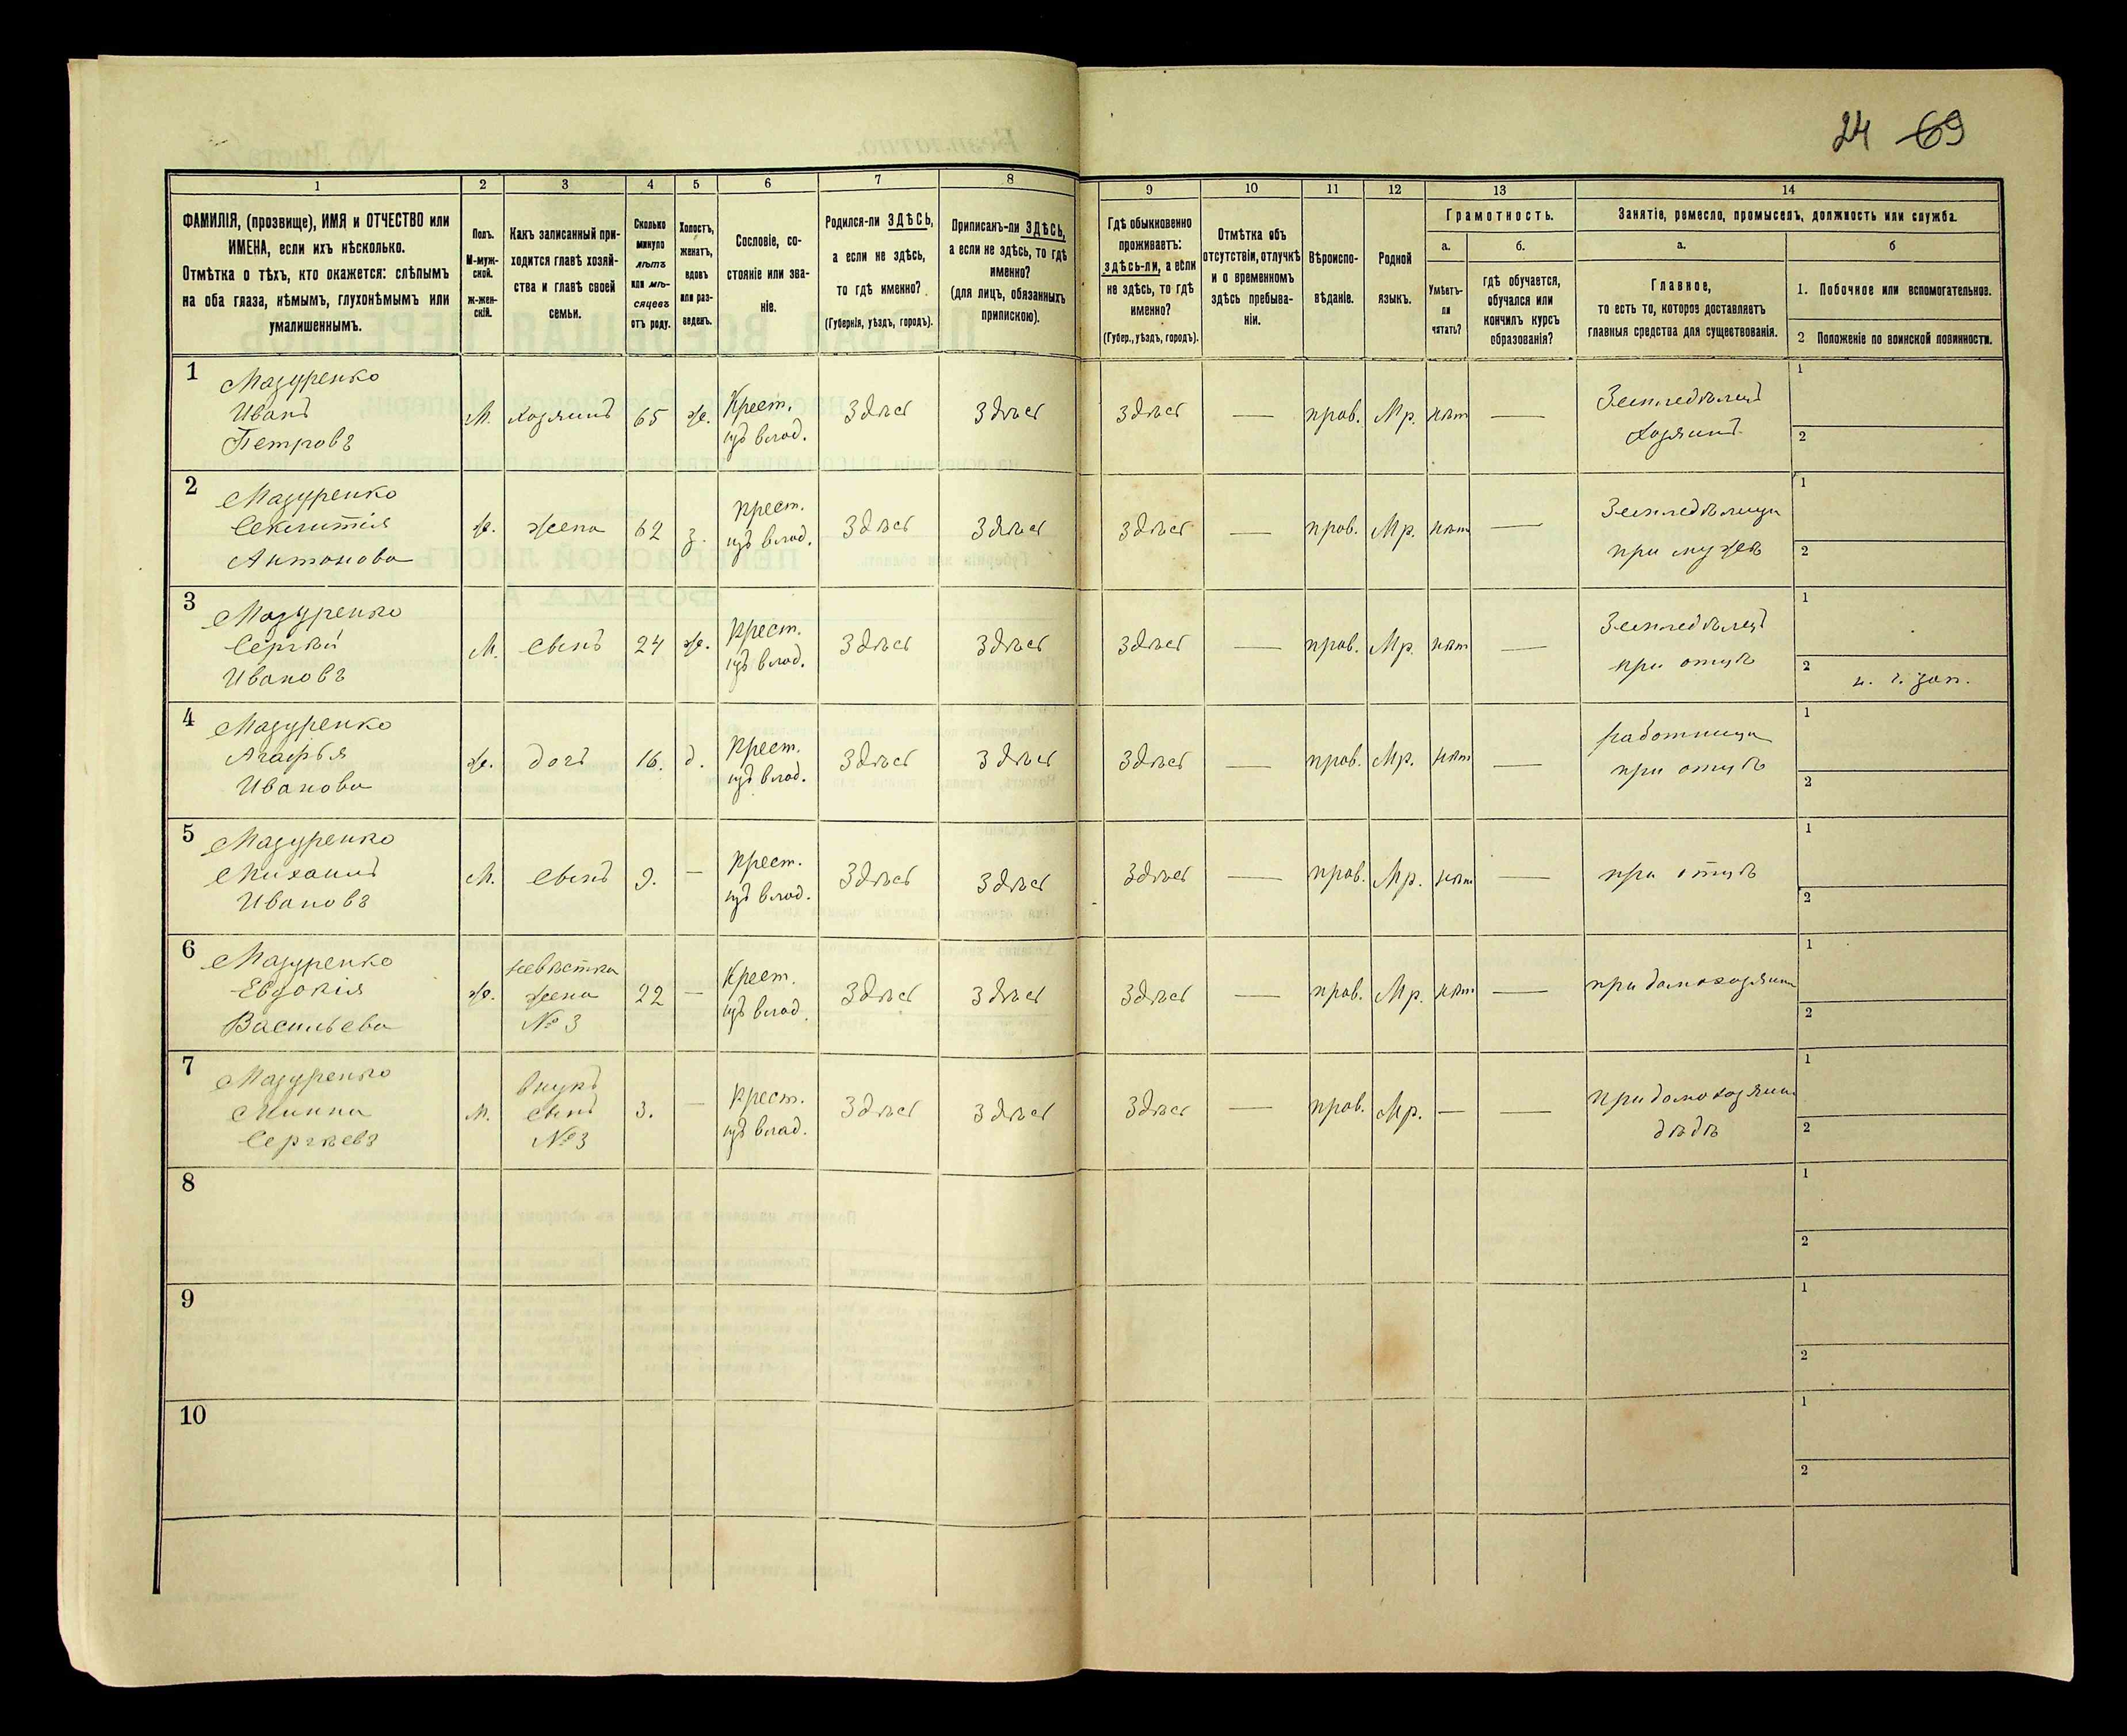 24 69
1 2 3 4 5 6 7 8 9 10 11 12 13 14
ФАМИЛІЯ, (прозвище), ИМЯ и ОТЧЕСТВО или
ИМЕНА, если ихъ нѣсколько.
Отмѣтка о тѣхъ, кто окажется: слѣпымъ
на оба глаза, нѣмымъ, глухонѣмымъ или
умалишеннымъ.
Полъ.
М-муж-
ской.
ж-жен-
скій.
Какъ записанный при-
ходится главѣ хозяй-
ства и главѣ своей
семьи.
Сколько
минуло
лѣтъ
или мѣ-
сяцевъ
отъ роду.
Холостъ,
женатъ,
вдовъ
или раз-
веденъ.
Сословіе, со-
стояніе или зва-
ніе.
Родился-ли ЗДѢСЬ,
а если не здѣсь,
то гдѣ именно?
(Губернія, уѣздъ, городъ).
Приписанъ-ли ЗДѢСЬ,
а если не здѣсь, то гдѣ
именно?
(для лицъ, обязанныхъ
припискою).
Гдѣ обыкновенно
проживаетъ:
здѣсь-ли, а если
не здѣсь, то гдѣ
именно?
(Губер., уѣздъ, городъ).
Отмѣтка объ
отсутствіи, отлучкѣ
и о временномъ
здѣсь пребыва-
ніи.
Вѣроиспо-
вѣданіе.
Родной
языкъ.
Грамотность.
а.
Умѣетъ-
ли
читать?
б.
гдѣ обучается,
обучался или
кончилъ курсъ
образованія?
Занятіе, ремесло, промыселъ, должность или служба.
а.
Главное,
то есть то, которое доставляетъ
главныя средства для существованія.
б
1. Побочное или вспомогательное.
2 Положеніе по воинской повинности.
1 Мазуренко
Иванъ
Петровъ
М. хозяинъ 65 ж. Крест.
изъ влад.
Здѣсь Здѣсь Здѣсь — прав. Мр. нѣт —
Земледѣлецъ
хозяинъ
1
2
2 Мазуренко
Секлитія
Антонова
ж. жена 62 з. крест.
изъ влад.
Здѣсь Здѣсь Здѣсь — прав. Мр. нѣт —
Земледѣлица
при мужѣ
1
2
3 Мазуренко
Сергѣй
Ивановъ
М. сынъ 24 ж. крест.
изъ влад.
Здѣсь Здѣсь Здѣсь — прав. Мр. нѣт —
Земледѣлецъ
при отцѣ
1
2 н. ч. зап.
4 Мазуренко
Агафья
Иванова
ж. дочь 16. д. крест.
изъ влад.
Здѣсь Здѣсь Здѣсь — прав. Мр. нѣт —
работница
при отцѣ
1
2
5 Мазуренко
Михаилъ
Ивановъ
М. сынъ 9. — крест.
изъ влад.
Здѣсь Здѣсь Здѣсь — прав. Мр. нѣт —
при отцѣ
1
2
6 Мазуренко
Евдокія
Васильева
ж. невѣстка
жена
№ 3
22 — Крест.
изъ влад.
Здѣсь Здѣсь Здѣсь — прав. Мр. нѣт —
при домохозяинѣ
1
2
7 Мазуренко
Минна
Сергѣевъ
М. внукъ
сынъ
№ 3
3. — крест.
изъ влад.
Здѣсь Здѣсь Здѣсь — прав. Мр. — —
при домохозяинѣ
дѣдѣ
1
2
8
1
2
9
1
2
10
1
2